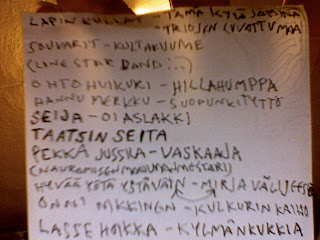 LAPIN KULLAT - TÄMÄ KYLÄ
- TRIOJEN LUVATTU MAA
SOUVARIT - KULTAKUUME
(LINE STAR BAND :-)
OHTO HUIKURI - HILLAHUMPPA
HANNU MERKKU - SUOPUNKITYTTÖ
SEIJA - OI ASLAKKI
TAATSIN SEITA
PEKKA JUSSILA - VASKAAJA
HYVÄÄ YÖTÄ YSTÄVÄIN - MIRJA
ONNI MIKKINEN - KULKURIN KAIHO
LASSE HOIKKA - KYLMÄNKUKKIA